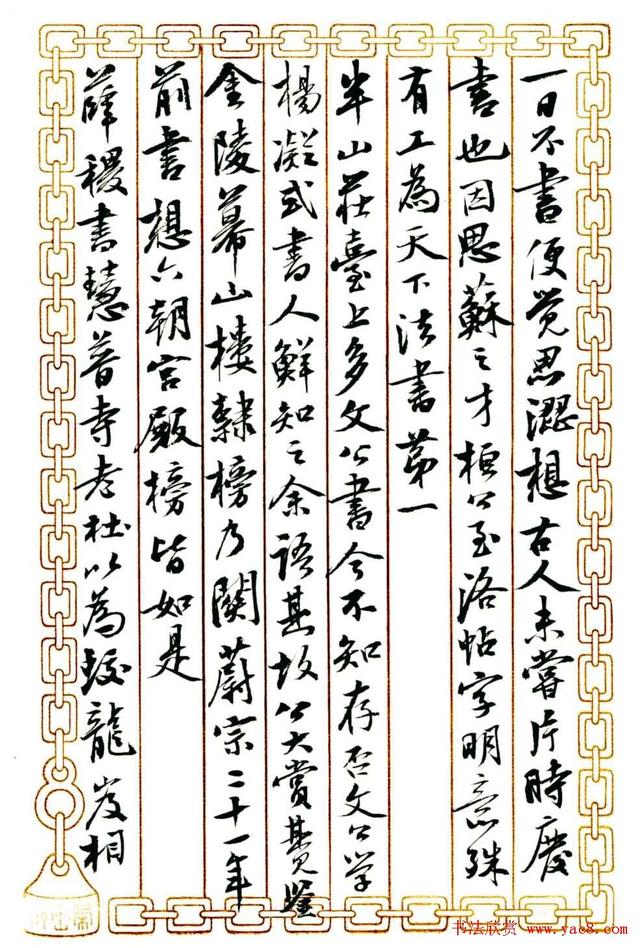 一日不書便觉思澀想古人未嘗片時廢
書也因思蘇之才桓公至洛帖字明意殊
有工為天下法書第一
半山莊臺上多文公書今不知存否文公学
楊凝式書人鮮知之余語其故公大賞其見鉴
金陵幕山樓隸榜乃關蔚宗二十一年
前書想六朝宮殿榜皆如是
薛稷書慧普寺老杜以為蛟龍岌相
书法欣赏 www.yac8.com